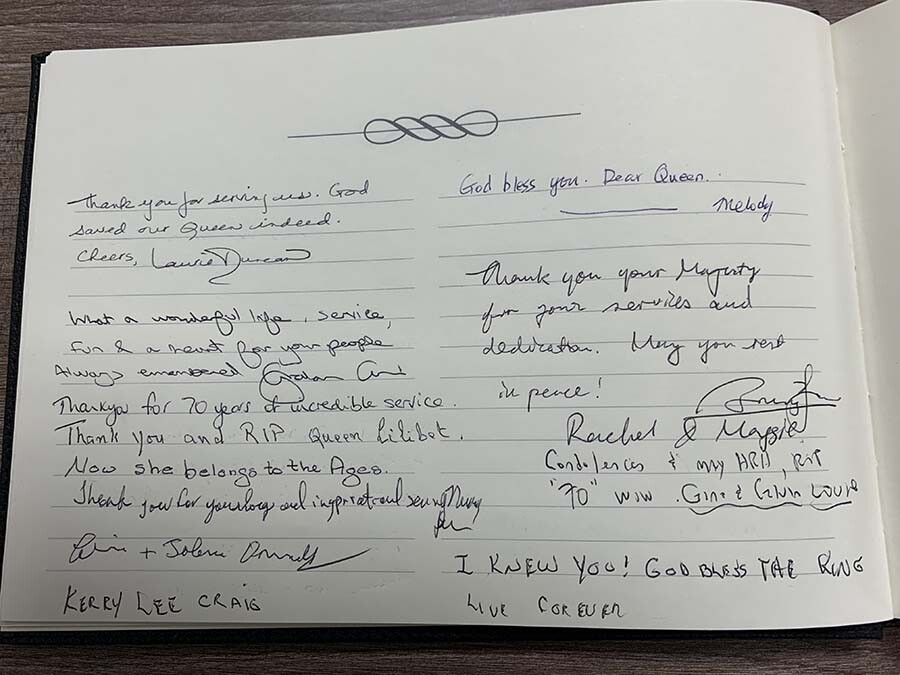 Thank you for serving us. God
saved our Queen indeed.
Cheers, Laurie Duncan
What a wonderful life, service,
fun & a heart for your people
Always emembered
Thankyou for 70 years of incredible service.
Thank you and RIP Queen Lilibet.
Now she belongs to the Ages.
Thank you for your long and
+ Jolene
KERRY LEE CRAIG
God bless you. Dear Queen..
Melody
Thank you your Majesty
for your services and
dedication. May you rest
in peace!
Rachel & Maggie
Condolences &
"70" wow. Gina & Calvin Louie
I KNEW YOU! GOD BLESS THE KING
LIVE FOREVER